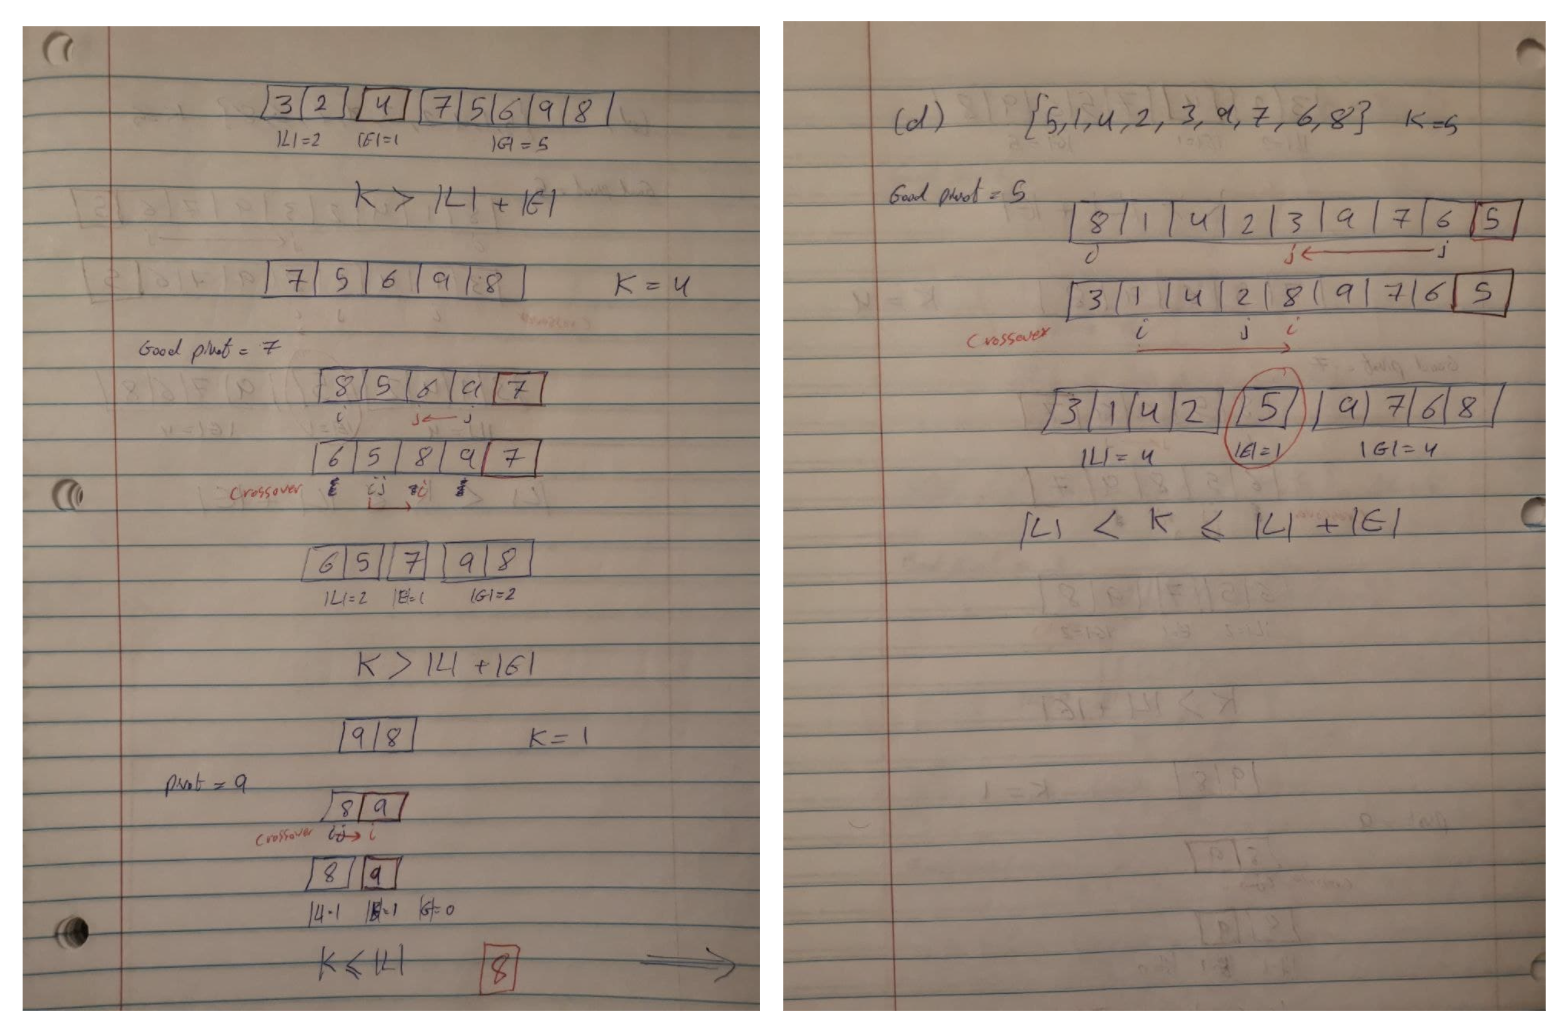 3 2 4 7 5 6 9 8
|L|=2 |E|=1 |G|=5
K > |L| + |E|
7 5 6 9 8 K = 4
Good pivot = 7
8 5 6 9 7
i j ← j
6 5 8 9 7
Crossover i j i
6 5 7 9 8
|L|=2 |E|=1 |G|=2
K > |L| + |E|
9 8 K = 1
pivot = 9
8 9
Crossover i j → i
8 9
|L|=1 |E|=1 |G|=0
K ≤ |L| 8 →
(d) {5,1,4,2,3,9,7,6,8} K=5
Good pivot = 5
8 1 4 2 3 9 7 6 5
i j ← j
3 1 4 2 8 9 7 6 5
Crossover i j i
3 1 4 2 5 9 7 6 8
|L|=4 |E|=1 |G|=4
|L| < K ≤ |L| + |E|